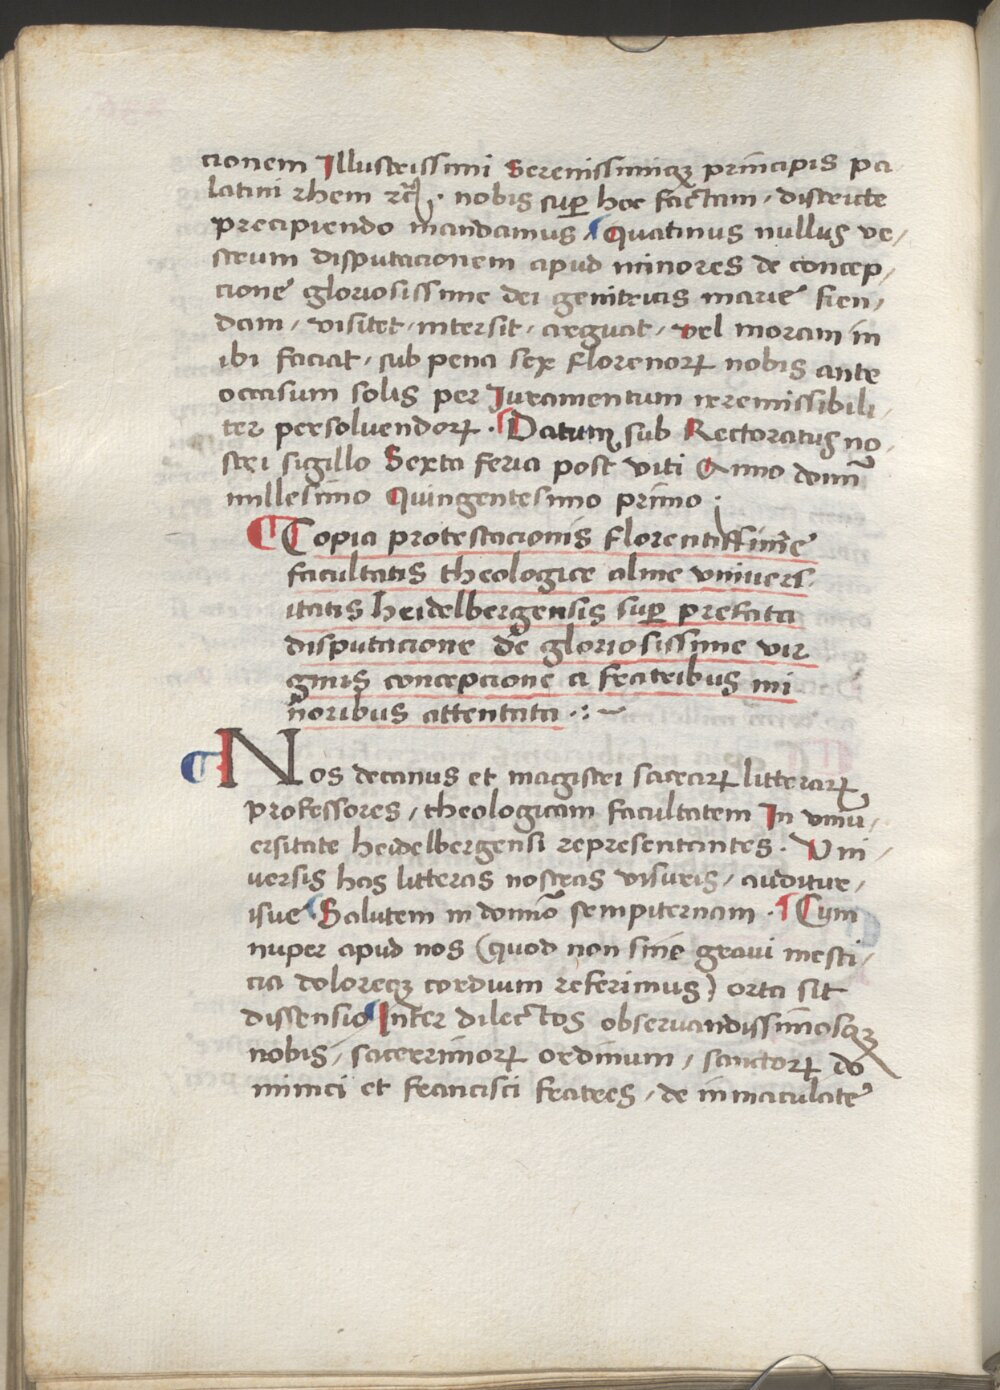 cionem Illustrissimi Serenissimiqꝫ principis pa
latini rheni ꝛcꝭ. nobis suꝑ hoc factam, districte
precipiendo mandamus, Quatinus nullus ve,
strum disputacionem apud minores de concep,
cione gloriosissime dei genitricis marie fien,
dam, visitet, intersit, arguat, vel moram in
ibi faciat, sub pena sex florenorꝝ nobis ante
occasum solis per Juramentum irremissibili,
ter persoluendorꝝ. Datum sub Rectoratus no,
stri sigillo Sexta feria post viti Anno domĩ
millesimo Quingentesimo primo :
Copia protestacionis florentissime
facultatis theologice alme vniuers,
itatis heidelbergensis suꝑ prefata
disputacione de gloriosissime vir
ginis concepcione a fratribus mi
noribus attentata .:~
Nos decanus et magistri sacrarꝝ litterarꝝ
professores, theologicam facultatem In vniu,
ersitate heidelbergensi representantes. Vni,
versis has litteras nostras visuris, auditur,
isue Salutem in domĩo sempiternam. Cum
nuper apud nos (quod non sine graui mesti,
cia doloreqꝫ cordium referimus) orta sit
dissensio Inter dilectos obseruandissimosqꝫ
nobis, sacerrimorꝝ ordinum, sanctorꝝ do
minici et francisci fratres, de inmaculate